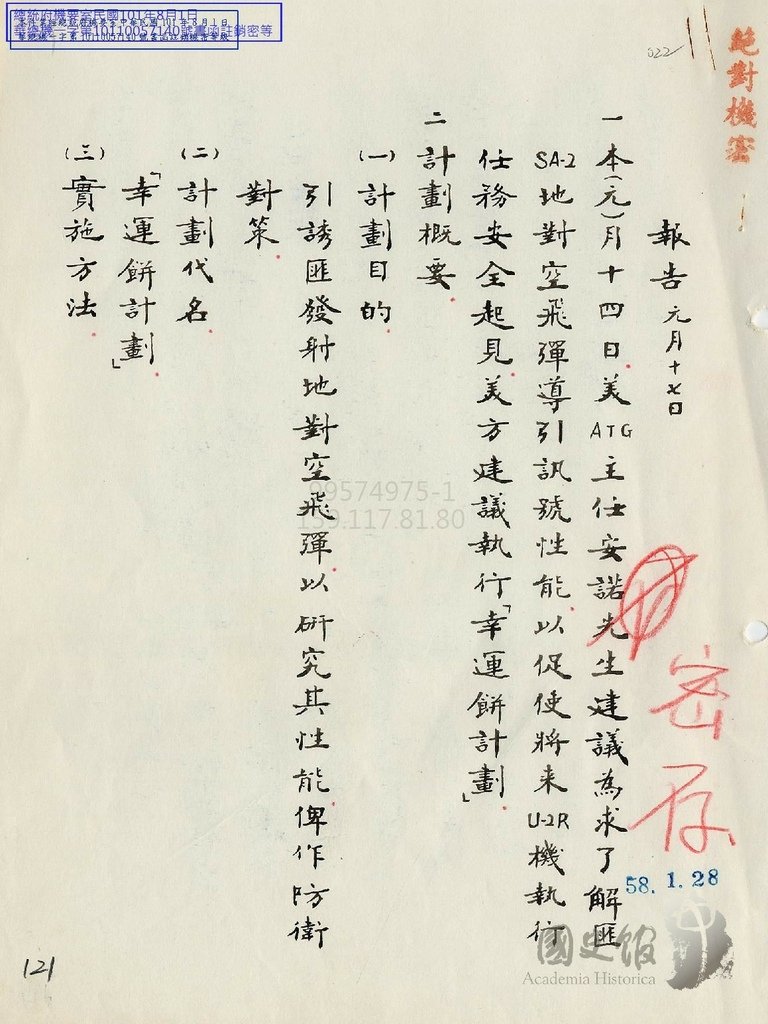 總統府機要室民國101年8月1日
華總機一字第10110057140號書函註銷密等
022
絕對機密
報告 元月十七日
一本(元)月十四日美ATG主任安諾先生建議為求了解匪
SA-2地對空飛彈導引訊號性能以促使將来U-2R機執行
任務安全起見美方建議執行「幸運餅計劃」
二計劃概要
(一)計劃目的
引誘匪發射地對空飛彈以研究其性能俾作防衛
對策
(二)計劃代名
「幸運餅計劃」
(三)實施方法
密存
58.1.28
99574975-1
159.117.81.80
國史館
Academia Historica
121